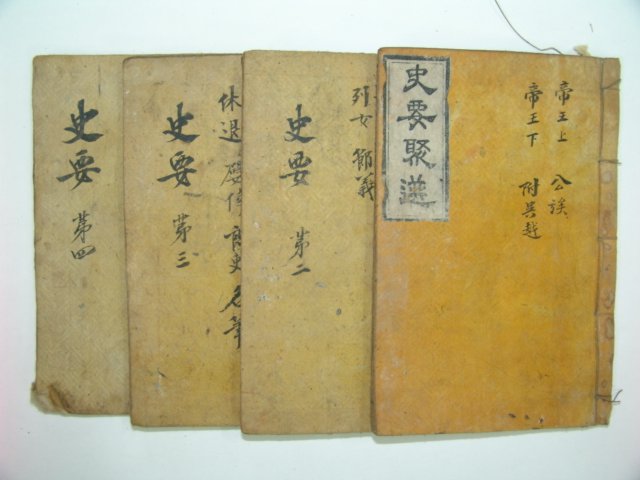 史要聚選
帝王上 公族
帝王下 附吳越
列女 節義
史要 第二
休退
史要 第三
史要 第四